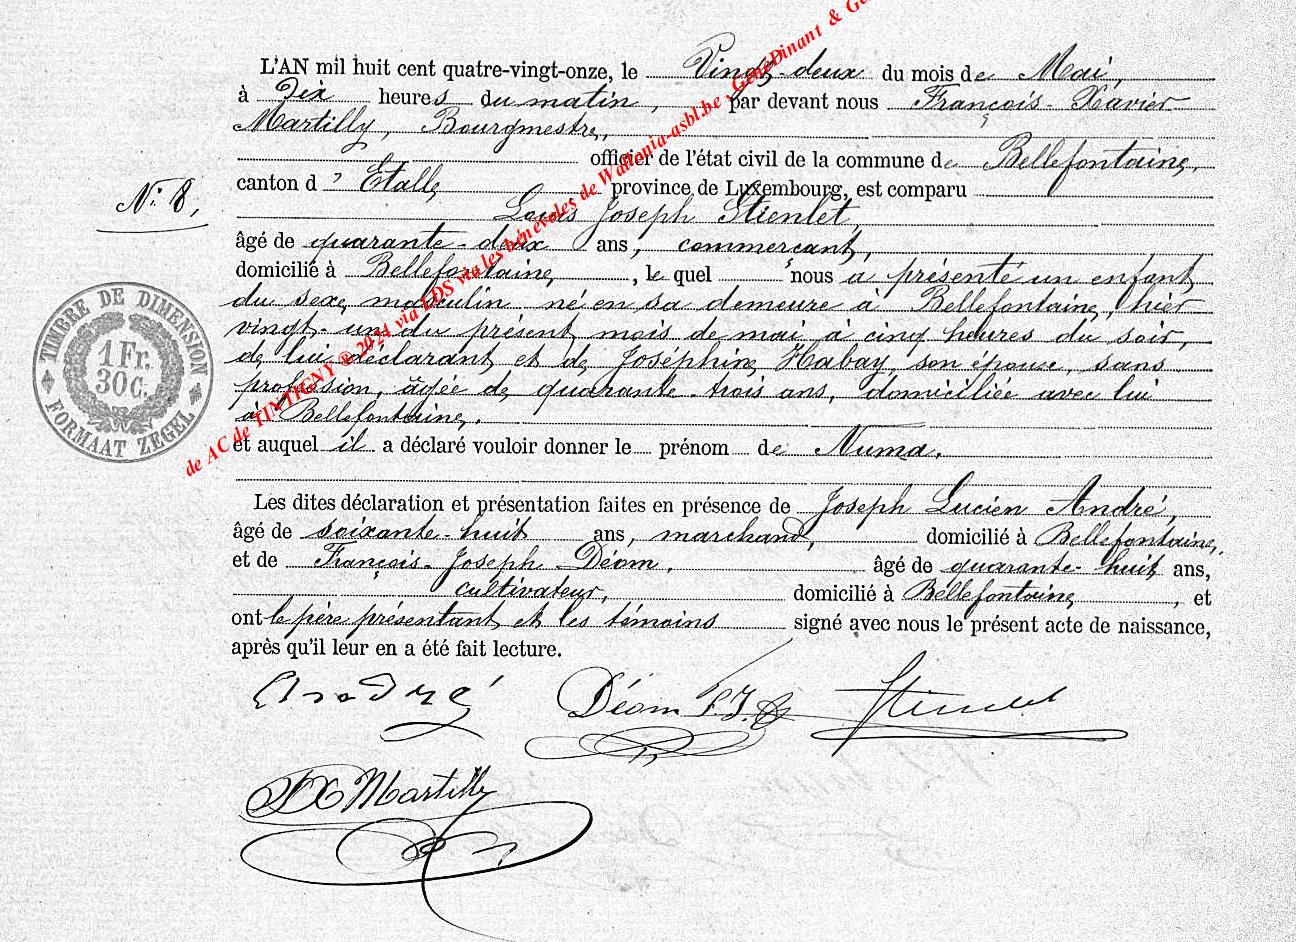 L'AN mil huit cent quatre-vingt-onze, le Vingt-deux du mois de Mai,
à Dix heures du matin, par devant nous François-Xavier
Martilly, Bourgmestre,
officier de l'état civil de la commune de Bellefontaine,
canton d'Etalle, province de Luxembourg, est comparu
N° 8,
Louis Joseph Stienlet,
âgé de quarante-deux ans, commerçant,
domicilié à Bellefontaine, le quel nous a présenté un enfant
du sexe masculin né en sa demeure à Bellefontaine, hier
vingt-un du présent mois de mai à cinq heures du soir,
de lui déclarant et de Joséphine Habay, son épouse, sans
profession, âgée de quarante-trois ans, domiciliée avec lui
à Bellefontaine.
et auquel il a déclaré vouloir donner le prénom de Numa.
TIMBRE DE DIMENSION
1 Fr.
30 C.
FORMAAT ZEGEL
Les dites déclaration et présentation faites en présence de Joseph Lucien André,
âgé de soixante-huit ans, marchand, domicilié à Bellefontaine,
et de François-Joseph Déom, âgé de quarante-huit ans,
cultivateur, domicilié à Bellefontaine, et
ont le père présentant et les témoins signé avec nous le présent acte de naissance,
après qu'il leur en a été fait lecture.
André Déom F.J. Stienlet
FX Martilly
de AC de TINTIGNY ® 2024 via LDS via les bénévoles de Wallonia-asbl.be, GeneDinant &